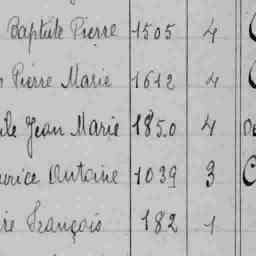 Baptiste Pierre 1505 4
Pierre Marie 1612 4
Jean Marie 1850 4
Antoine 1039 3
François 182 1